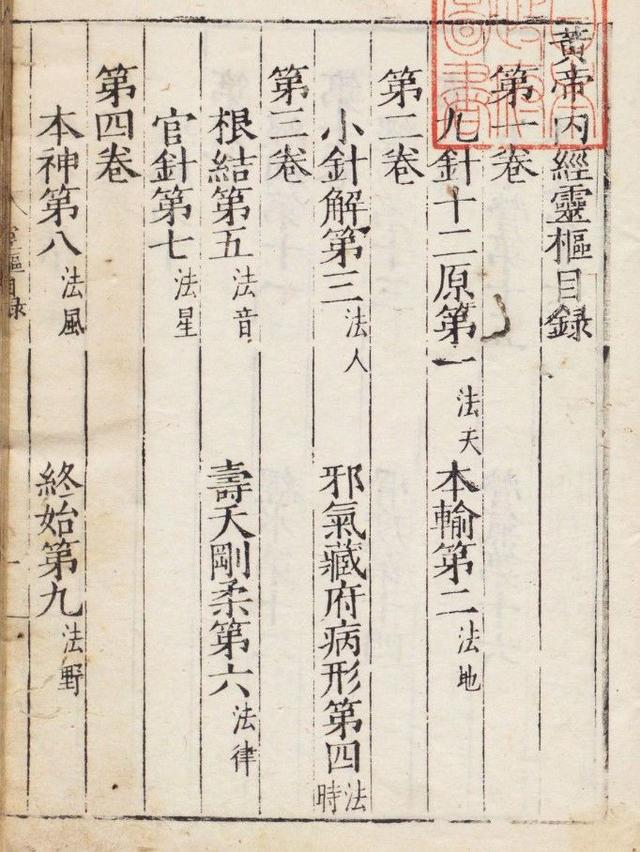 黃帝内經靈樞目録
第一卷
九針十二原第一 法天 本輸第二 法地
第二卷
小針解第三 法人 邪氣藏府病形第四 法時
第三卷
根結第五 法音 壽夭剛柔第六 法律
官針第七 法星
第四卷
本神第八 法風 終始第九 法野